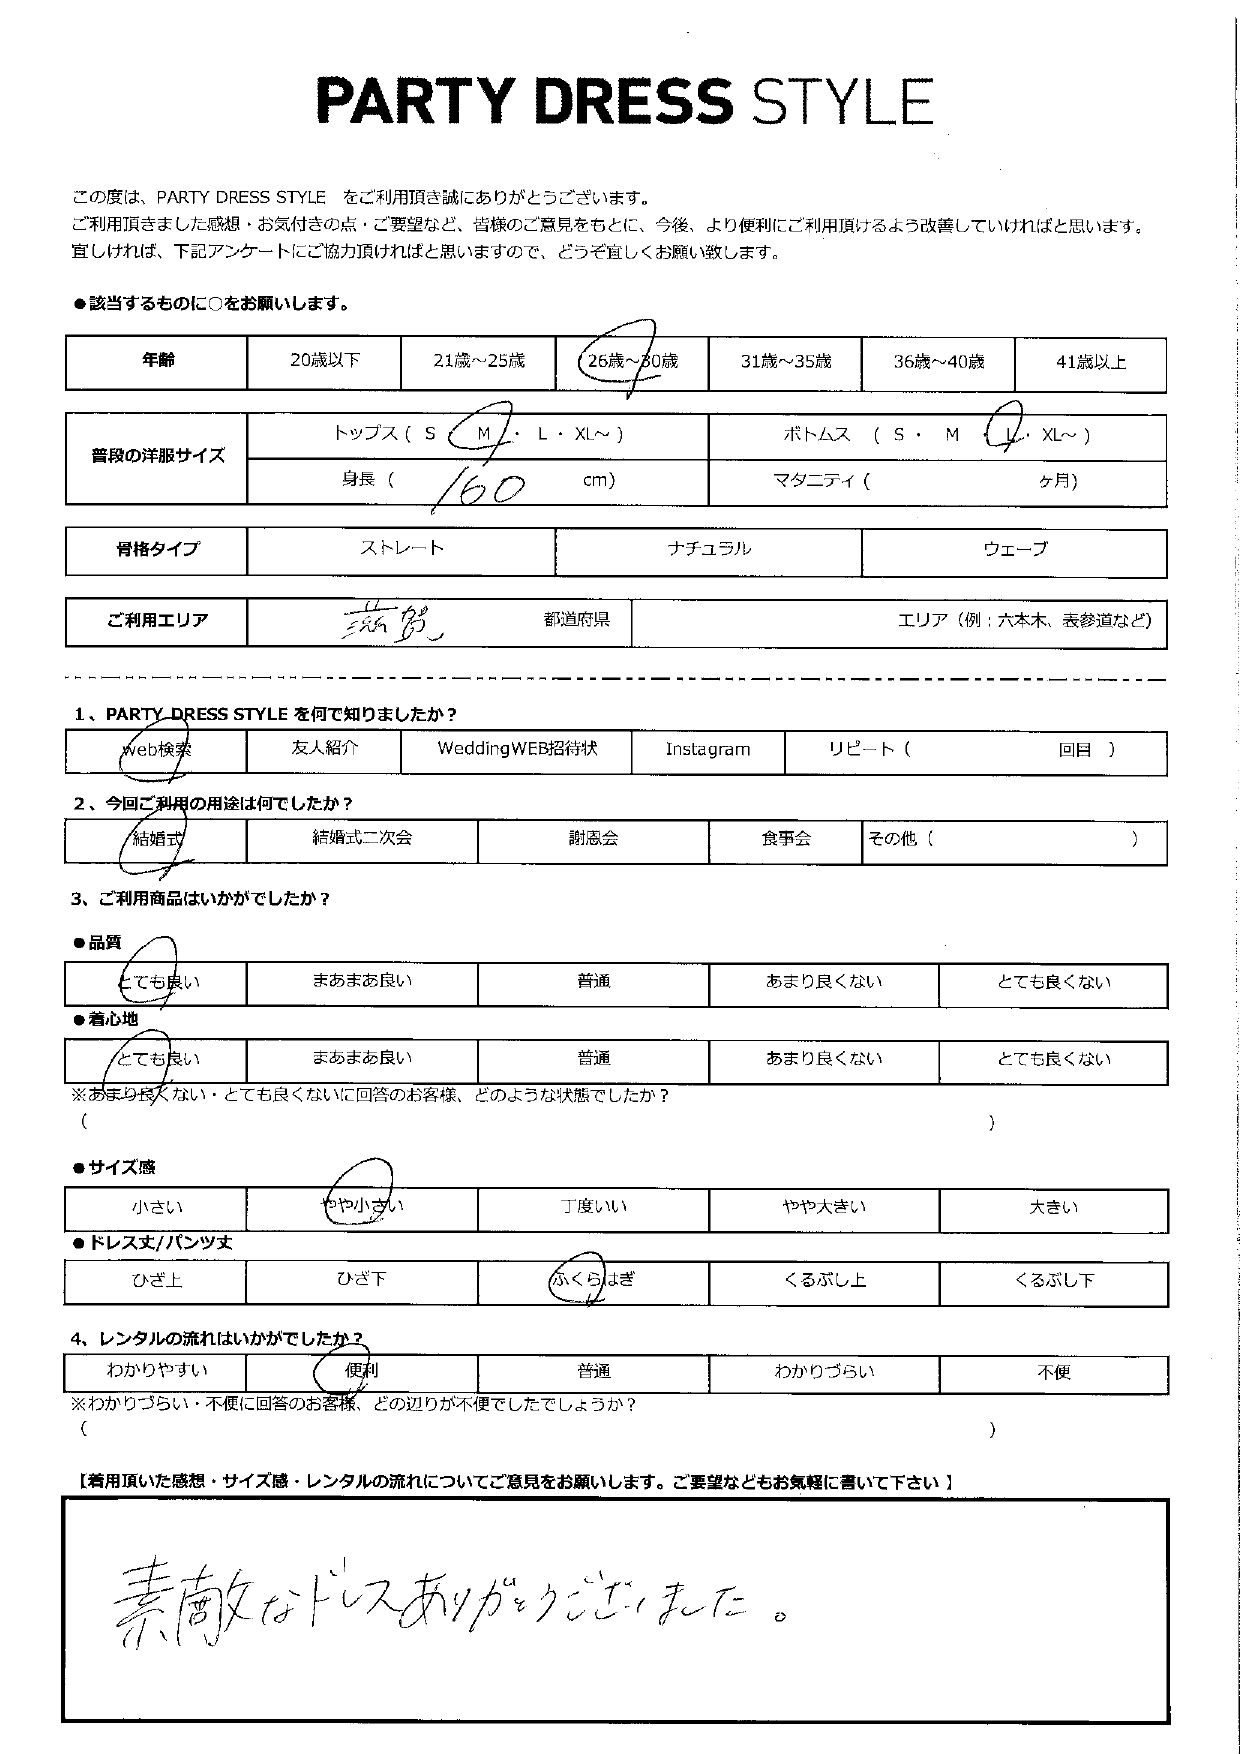 PARTY DRESS STYLE
この度は、PARTY DRESS STYLE をご利用頂き誠にありがとうございます。
ご利用頂きました感想・お気付きの点・ご要望など、皆様のご意見をもとに、今後、より便利にご利用頂けるよう改善していければと思います。
宜しければ、下記アンケートにご協力頂ければと思いますので、どうぞ宜しくお願い致します。
●該当するものに○をお願いします。
年齢 20歳以下 21歳～25歳 26歳～30歳 31歳～35歳 36歳～40歳 41歳以上
普段の洋服サイズ
トップス ( S ・ M ・ L ・ XL～ ) ボトムス ( S ・ M ・ L ・ XL～ )
身長 ( 160 cm) マタニティ ( ヶ月)
骨格タイプ ストレート ナチュラル ウェーブ
ご利用エリア 滋賀 都道府県 エリア（例：六本木、表参道など）
1、PARTY DRESS STYLE を何で知りましたか？
Web検索 友人紹介 WeddingWEB招待状 Instagram リピート ( 回目 )
2、今回ご利用の用途は何でしたか？
結婚式 結婚式二次会 謝恩会 食事会 その他 ( )
3、ご利用商品はいかがでしたか？
●品質
とても良い まあまあ良い 普通 あまり良くない とても良くない
●着心地
とても良い まあまあ良い 普通 あまり良くない とても良くない
※あまり良くない・とても良くないに回答のお客様、どのような状態でしたか？
( )
●サイズ感
小さい やや小さい 丁度いい やや大きい 大きい
●ドレス丈/パンツ丈
ひざ上 ひざ下 ふくらはぎ くるぶし上 くるぶし下
4、レンタルの流れはいかがでしたか？
わかりやすい 便利 普通 わかりづらい 不便
※わかりづらい・不便に回答のお客様、どの辺りが不便でしたでしょうか？
( )
【着用頂いた感想・サイズ感・レンタルの流れについてご意見をお願いします。ご要望などもお気軽に書いて下さい】
素敵なドレスありがとうございました。